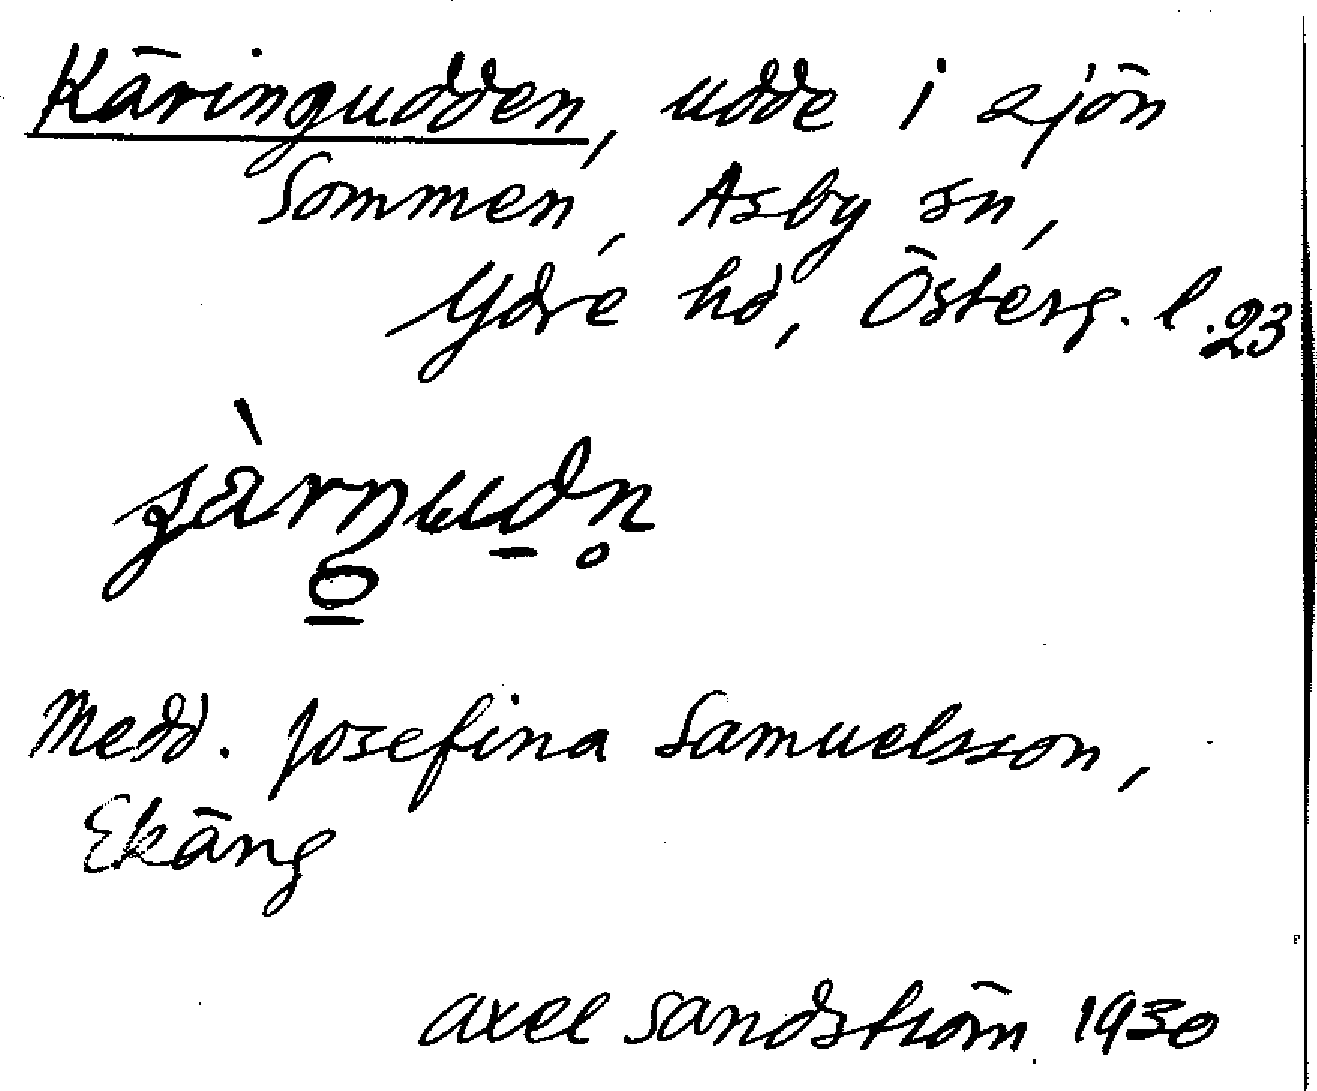 Käringudden, udde i sjön
Sommen, Asby sn,
Ydre hd, Österg. l. 23
Medd. Josefina Samuelsson,
Ekäng
Axel Sandström 1930